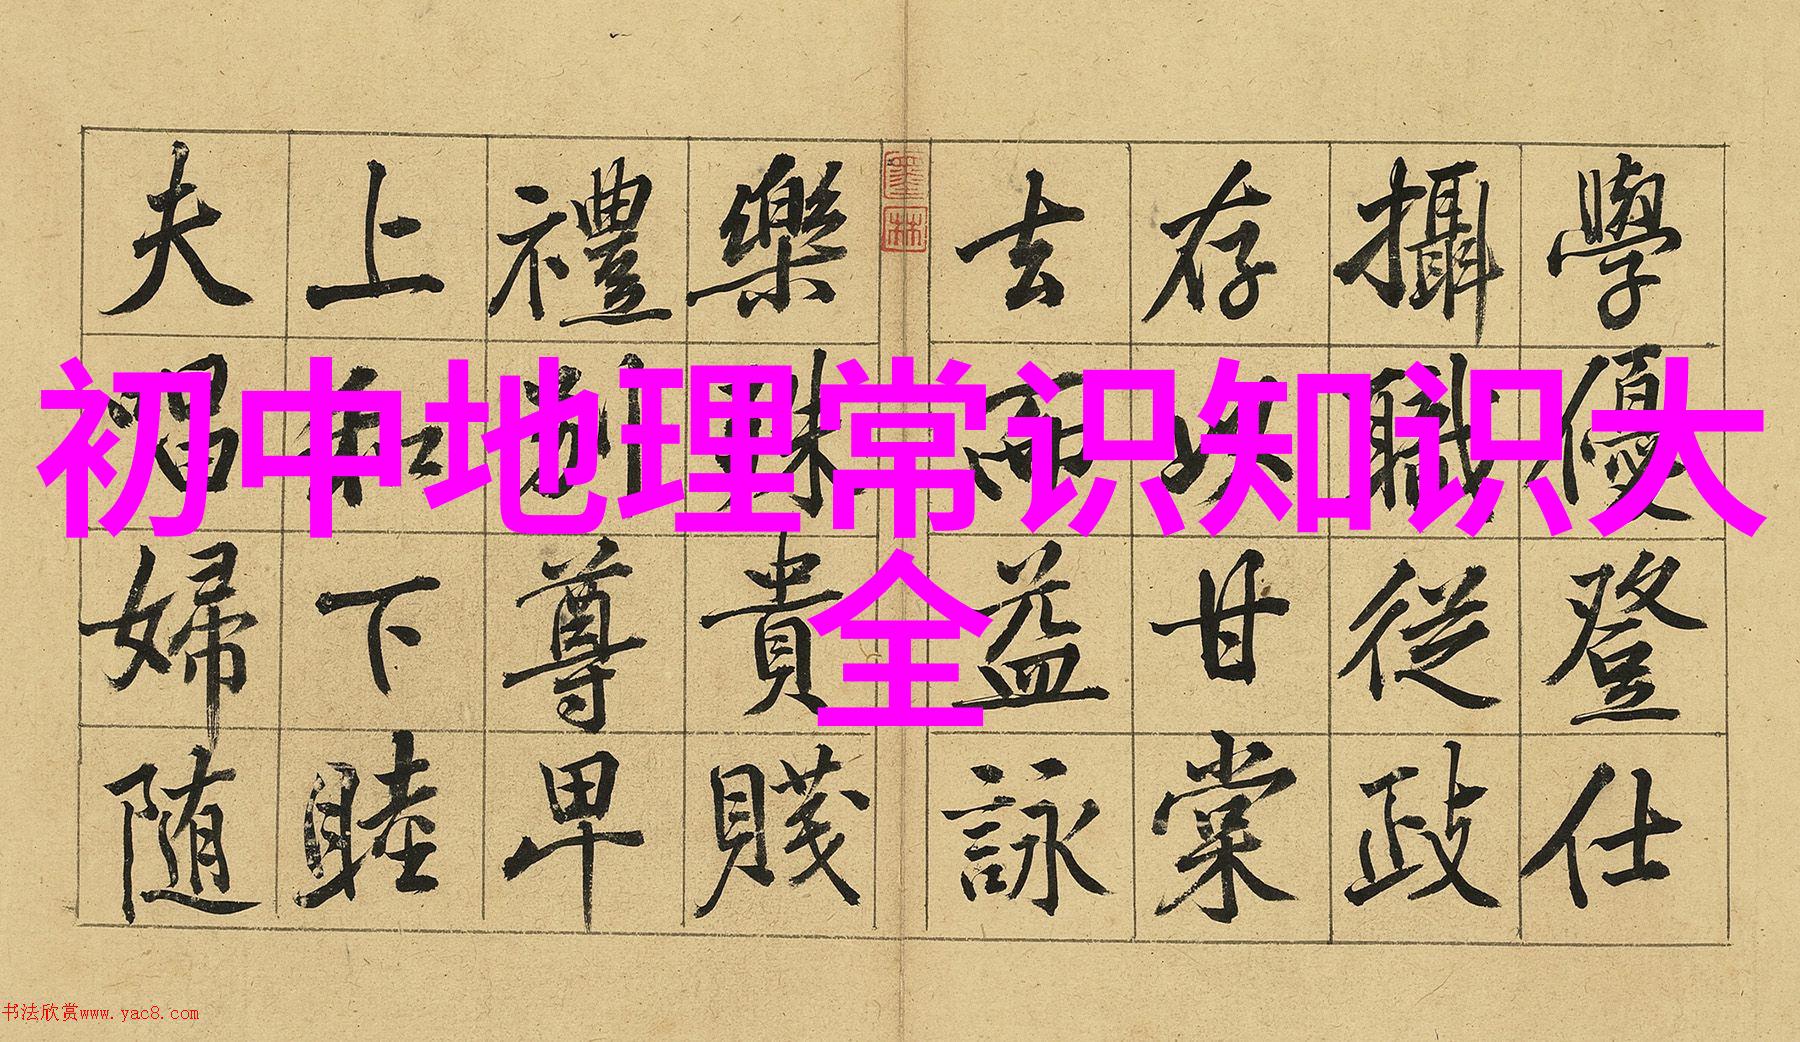 初中地理常识知识大
全
學優登仕
攝職從政
存以甘棠
去而益詠
樂殊貴賤
禮別尊卑
上和下睦
夫唱婦随
墨林
书法欣赏www.yac8.com